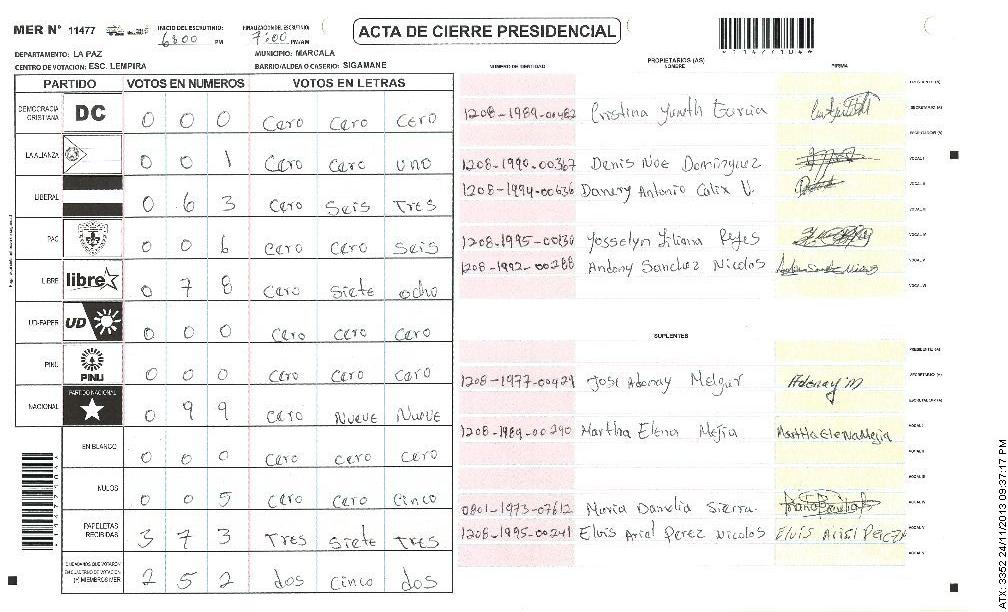 MER Nº 11477
INICIO DEL ESCRUTINIO:
6:00 PM
FINALIZACIÓN DEL ESCRUTINIO:
7:00 PM/AM
ACTA DE CIERRE PRESIDENCIAL
DEPARTAMENTO: LA PAZ
MUNICIPIO: MARCALA
CENTRO DE VOTACION: ESC. LEMPIRA
BARRIO/ALDEA O CASERIO: SIGAMANE
PARTIDO VOTOS EN NUMEROS VOTOS EN LETRAS
DEMOCRACIA CRISTIANA DC 0 0 0 Cero Cero Cero
LA ALIANZA 0 0 1 Cero Cero uno
LIBERAL 0 6 3 Cero Seis Tres
PAC 0 0 6 Cero Cero Seis
LIBRE libre 0 7 8 Cero Siete ocho
UD-FAPER UD 0 0 0 Cero Cero Cero
PINU PINU 0 0 0 Cero Cero Cero
NACIONAL PARTIDO NACIONAL 0 9 9 Cero Nueve Nueve
EN BLANCO 0 0 0 Cero Cero Cero
NULOS 0 0 5 Cero Cero Cinco
PAPELETAS RECIBIDAS 3 7 3 Tres Siete Tres
CIUDADANOS QUE VOTARON EN CUADERNO DE VOTACION (+) MIEMBROS MER 2 5 2 dos Cinco dos
NUMERO DE IDENTIDAD
PROPIETARIOS (AS)
NOMBRE
FIRMA
1208-1989-00482 Cristina Yunith Garcia
1208-1990-00367 Denis Noe Dominguez
1208-1994-00636 Danery Antonio Calix V.
1208-1995-00130 Yosselyn Liliana Reyes
1208-1992-00288 Andony Sanchez Nicolas
SUPLENTES
1208-1977-00429 Jose Adonay Melgar Adonay M
1208-1989-00290 Martha Elena Mejia Martha Elena Mejia
0801-1973-07612 Maria Danelia Sierra
1208-1995-00241 Elvis Ariel Perez Nicolas Elvis Ariel Perez
ATX: 3352 24/11/2013 09:37:17 PM